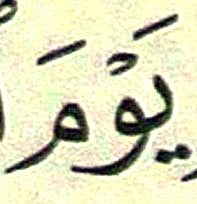 يَوْمَ